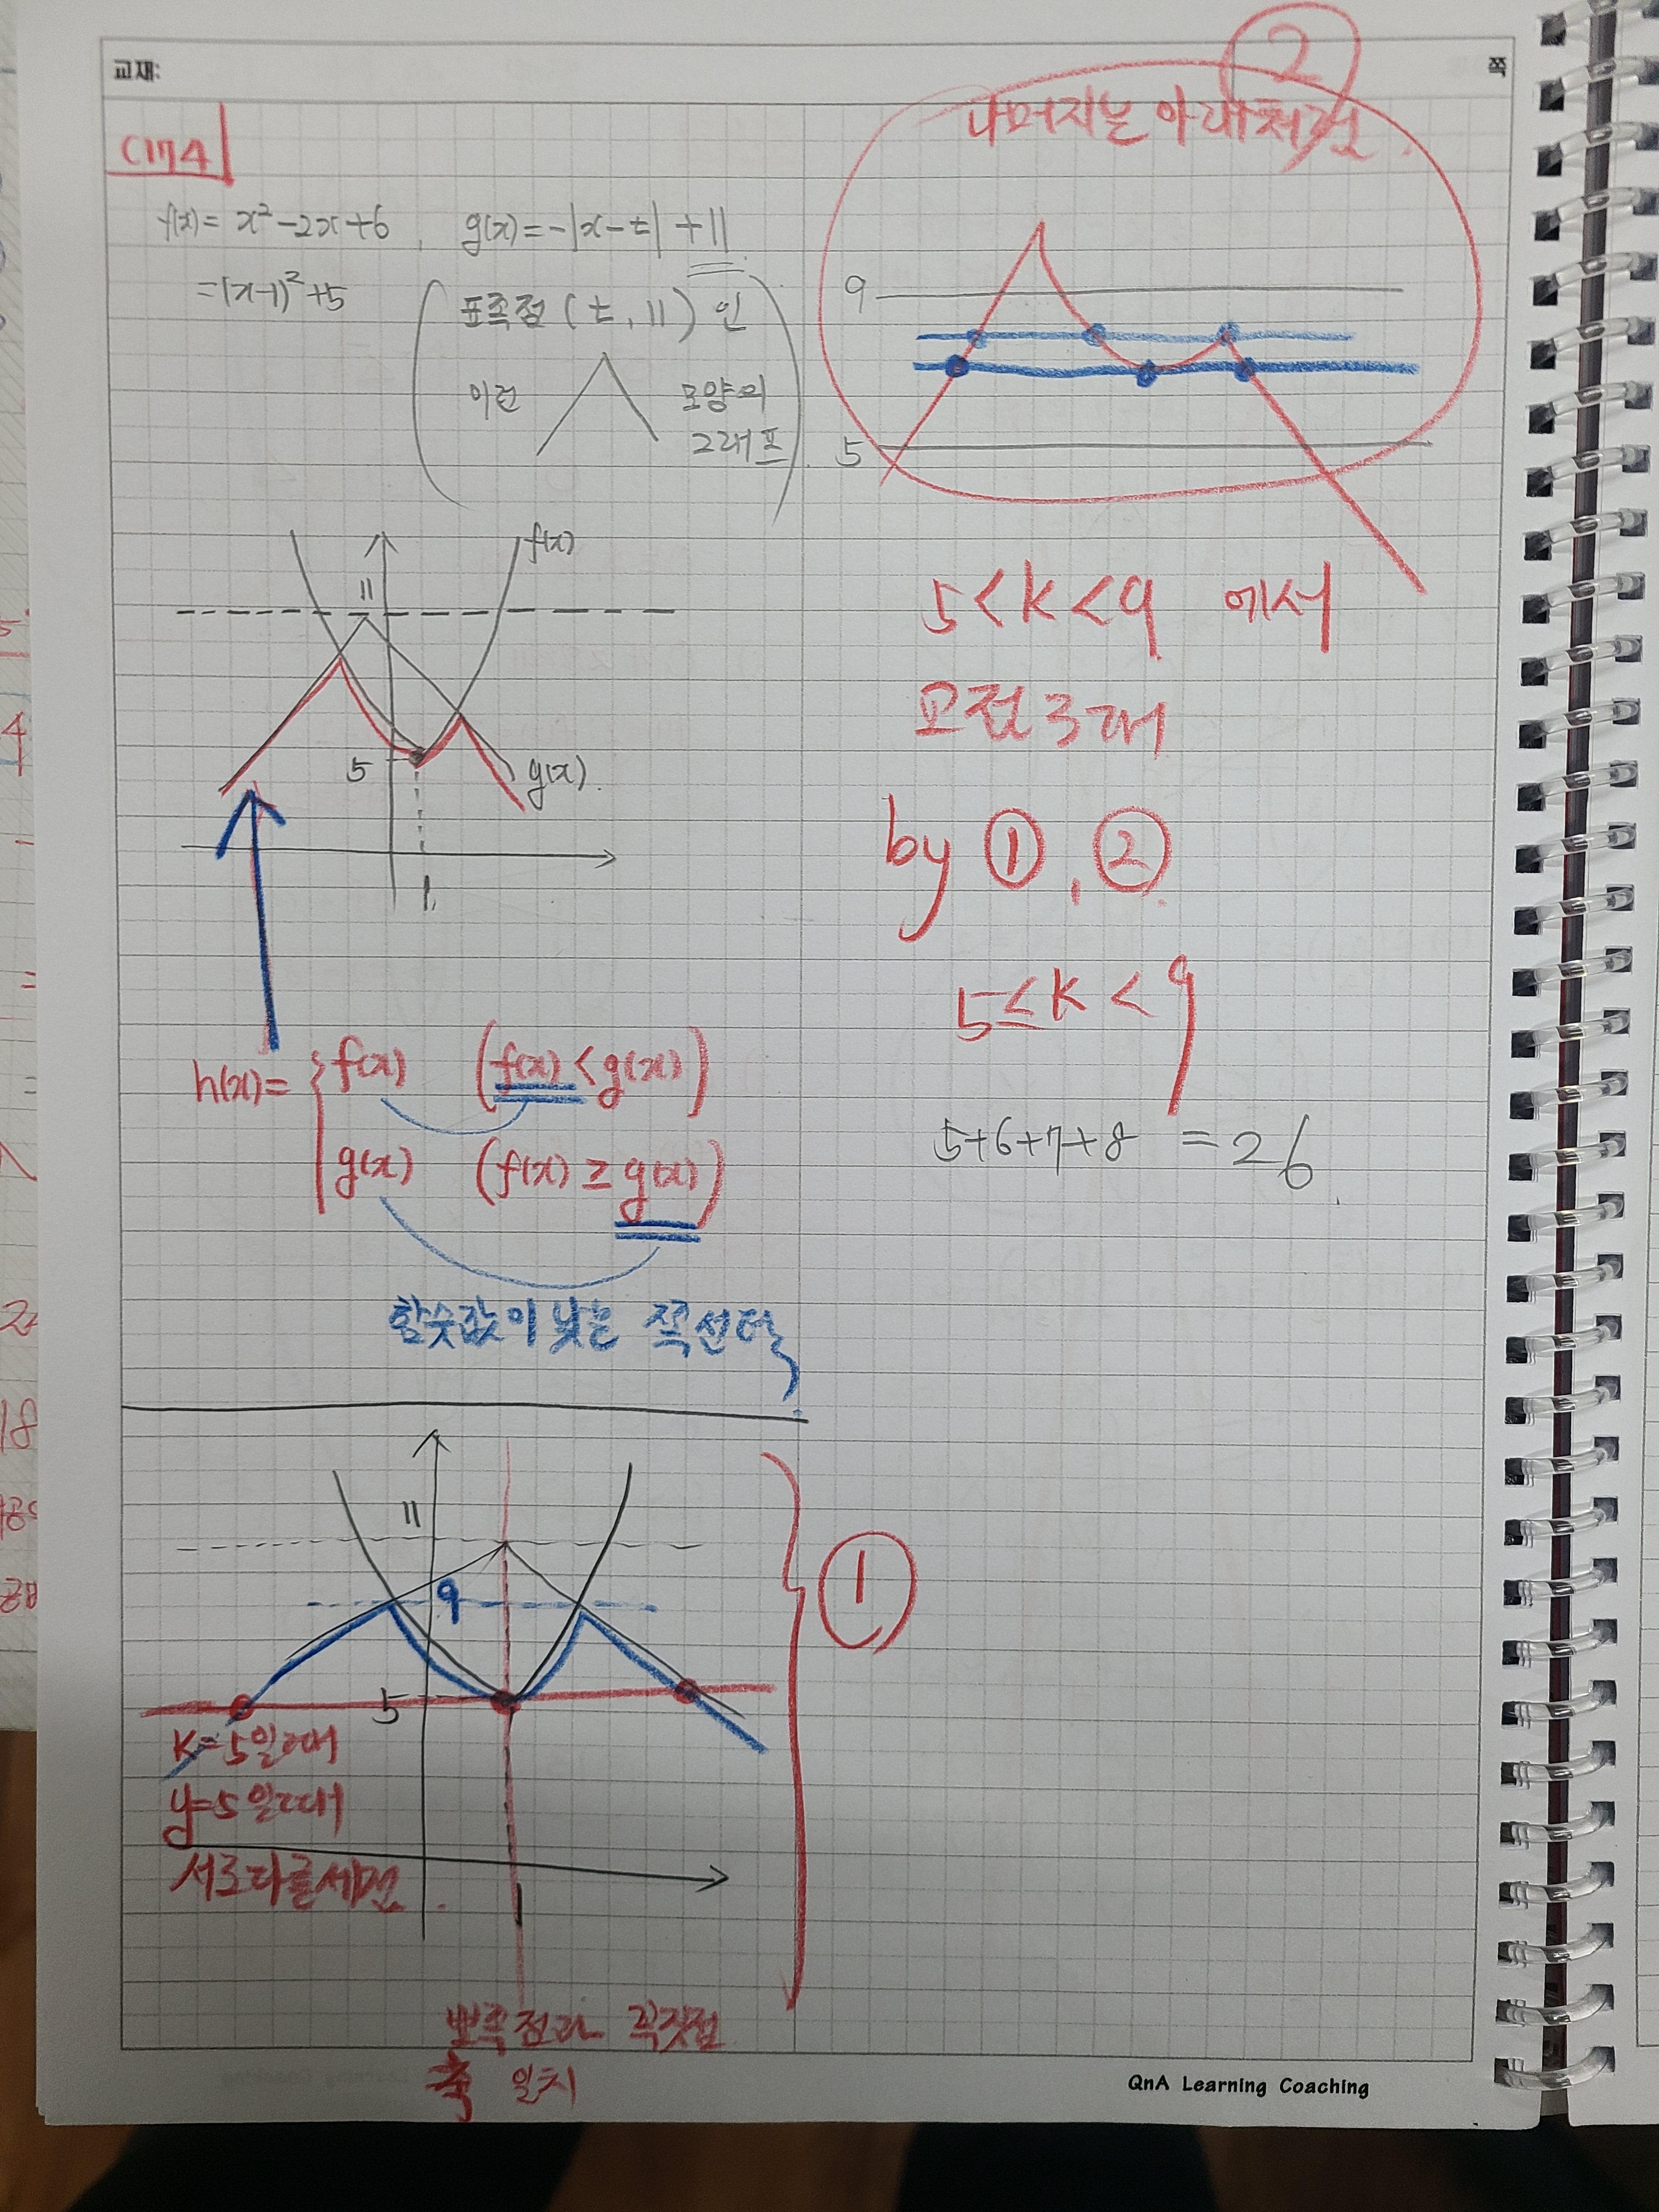 교재:
쪽
C174
f(x)= x²-2x+6 , g(x)=-|x-t|+11
=(x-1)²+5
뾰족점 (t, 11) 인
이런 모양의
그래프
f(x)
11
5
g(x)
1
h(x)= { f(x) (f(x) < g(x))
g(x) (f(x) ≥ g(x))
함숫값이 낮은 쪽 선택
11
9
5
①
k=5일때
y=5일때
서로다른세점
1
뾰족점과 꼭짓점
축 일치
②
나머지는 아래처럼
9
5
5<k<9 에서
교점 3개
by ①, ②
5≤k<9
5+6+7+8 =26
QnA Learning Coaching